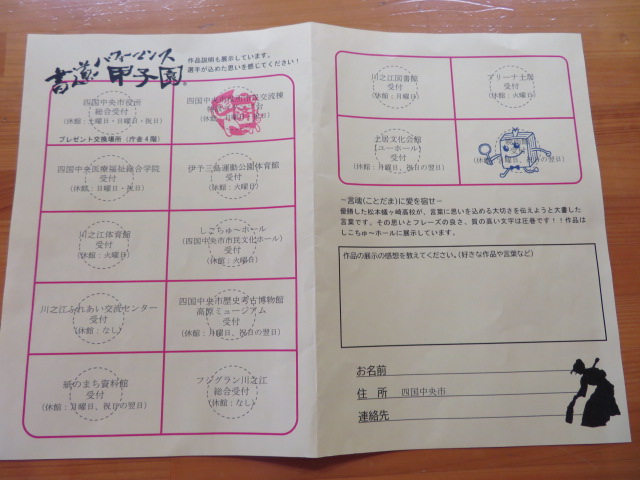 書道パフォーマンス
甲子園
作品説明も展示しています。
選手が込めた思いを感じてください!
四国中央市役所
総合受付
(休館:土曜日・日曜日・祝日)
プレゼント交換場所(庁舎4階)
四国中央市
交流棟
四国中央医療福祉総合学院
受付
(休館:日曜日・祝日)
伊予三島運動公園体育館
受付
(休館:火曜日)
川之江体育館
受付
(休館:火曜日)
しこちゅ~ホール
(四国中央市市民文化ホール)
受付
(休館:火曜日)
川之江ふれあい交流センター
受付
(休館:なし)
四国中央市歴史考古博物館
高原ミュージアム
受付
(休館:月曜日、祝日の翌日)
紙のまち資料館
受付
(休館:月曜日、祝日の翌日)
フジグラン川之江
総合受付
(休館:なし)
川之江図書館
受付
(休館:月曜日)
アリーナ土居
受付
(休館:火曜日)
土居文化会館
(ユーホール)
受付
(休館:月曜日、祝日の翌日)
(休館:月曜日、祝日の翌日)
-言魂(ことだま)に愛を宿せ-
優勝した松本蟻ヶ崎高校が、言葉に思いを込める大切さを伝えようと大書した
言葉です。その思いとフレーズの良さ、質の高い文字は圧巻です!!作品は
しこちゅ~ホールに展示しています。
作品の展示の感想を教えてください。(好きな作品や言葉など)
お名前
住 所 四国中央市
連絡先